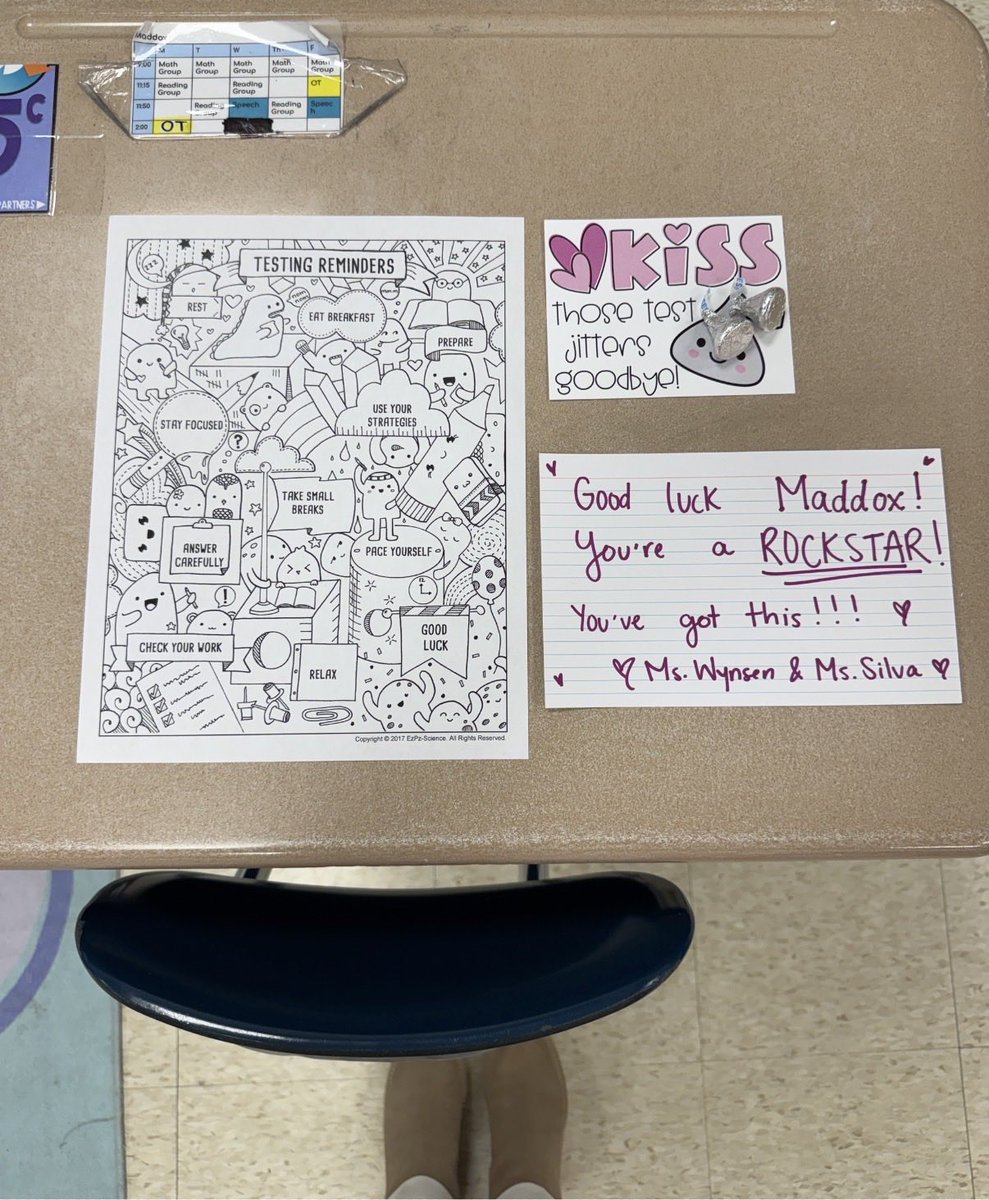 Maddox
M T W Th F
9:00 Math Group Math Group Math Group Math Group Math Group
11:15 Reading Group Reading Group OT
11:50 Reading Group Speech Reading Group Speech
2:00 OT
5c
PARTNERS
TESTING REMINDERS
zzz
REST
nom nom
EAT BREAKFAST
PREPARE
STAY FOCUSED
?
USE YOUR
STRATEGIES
TAKE SMALL
BREAKS
ANSWER
CAREFULLY
PACE YOURSELF
!
12
GOOD
LUCK
CHECK YOUR WORK
RELAX
Copyright © 2017 EzPz-Science. All Rights Reserved.
KiSS
those test
jitters
goodbye!
Good luck Maddox!
You're a ROCKSTAR!
You've got this!!!
Ms. Wynsen & Ms. Silva